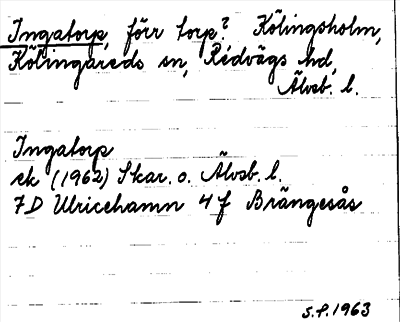 Ingatorp, förr torp? Kölingsholm,
Kölingareds sn, Redvägs hd,
Älvsb. l.
Ingatorp
ek (1962) Skar. o. Älvsb. l.
7D Ulricehamn 4 f Brängesås
S.P. 1963